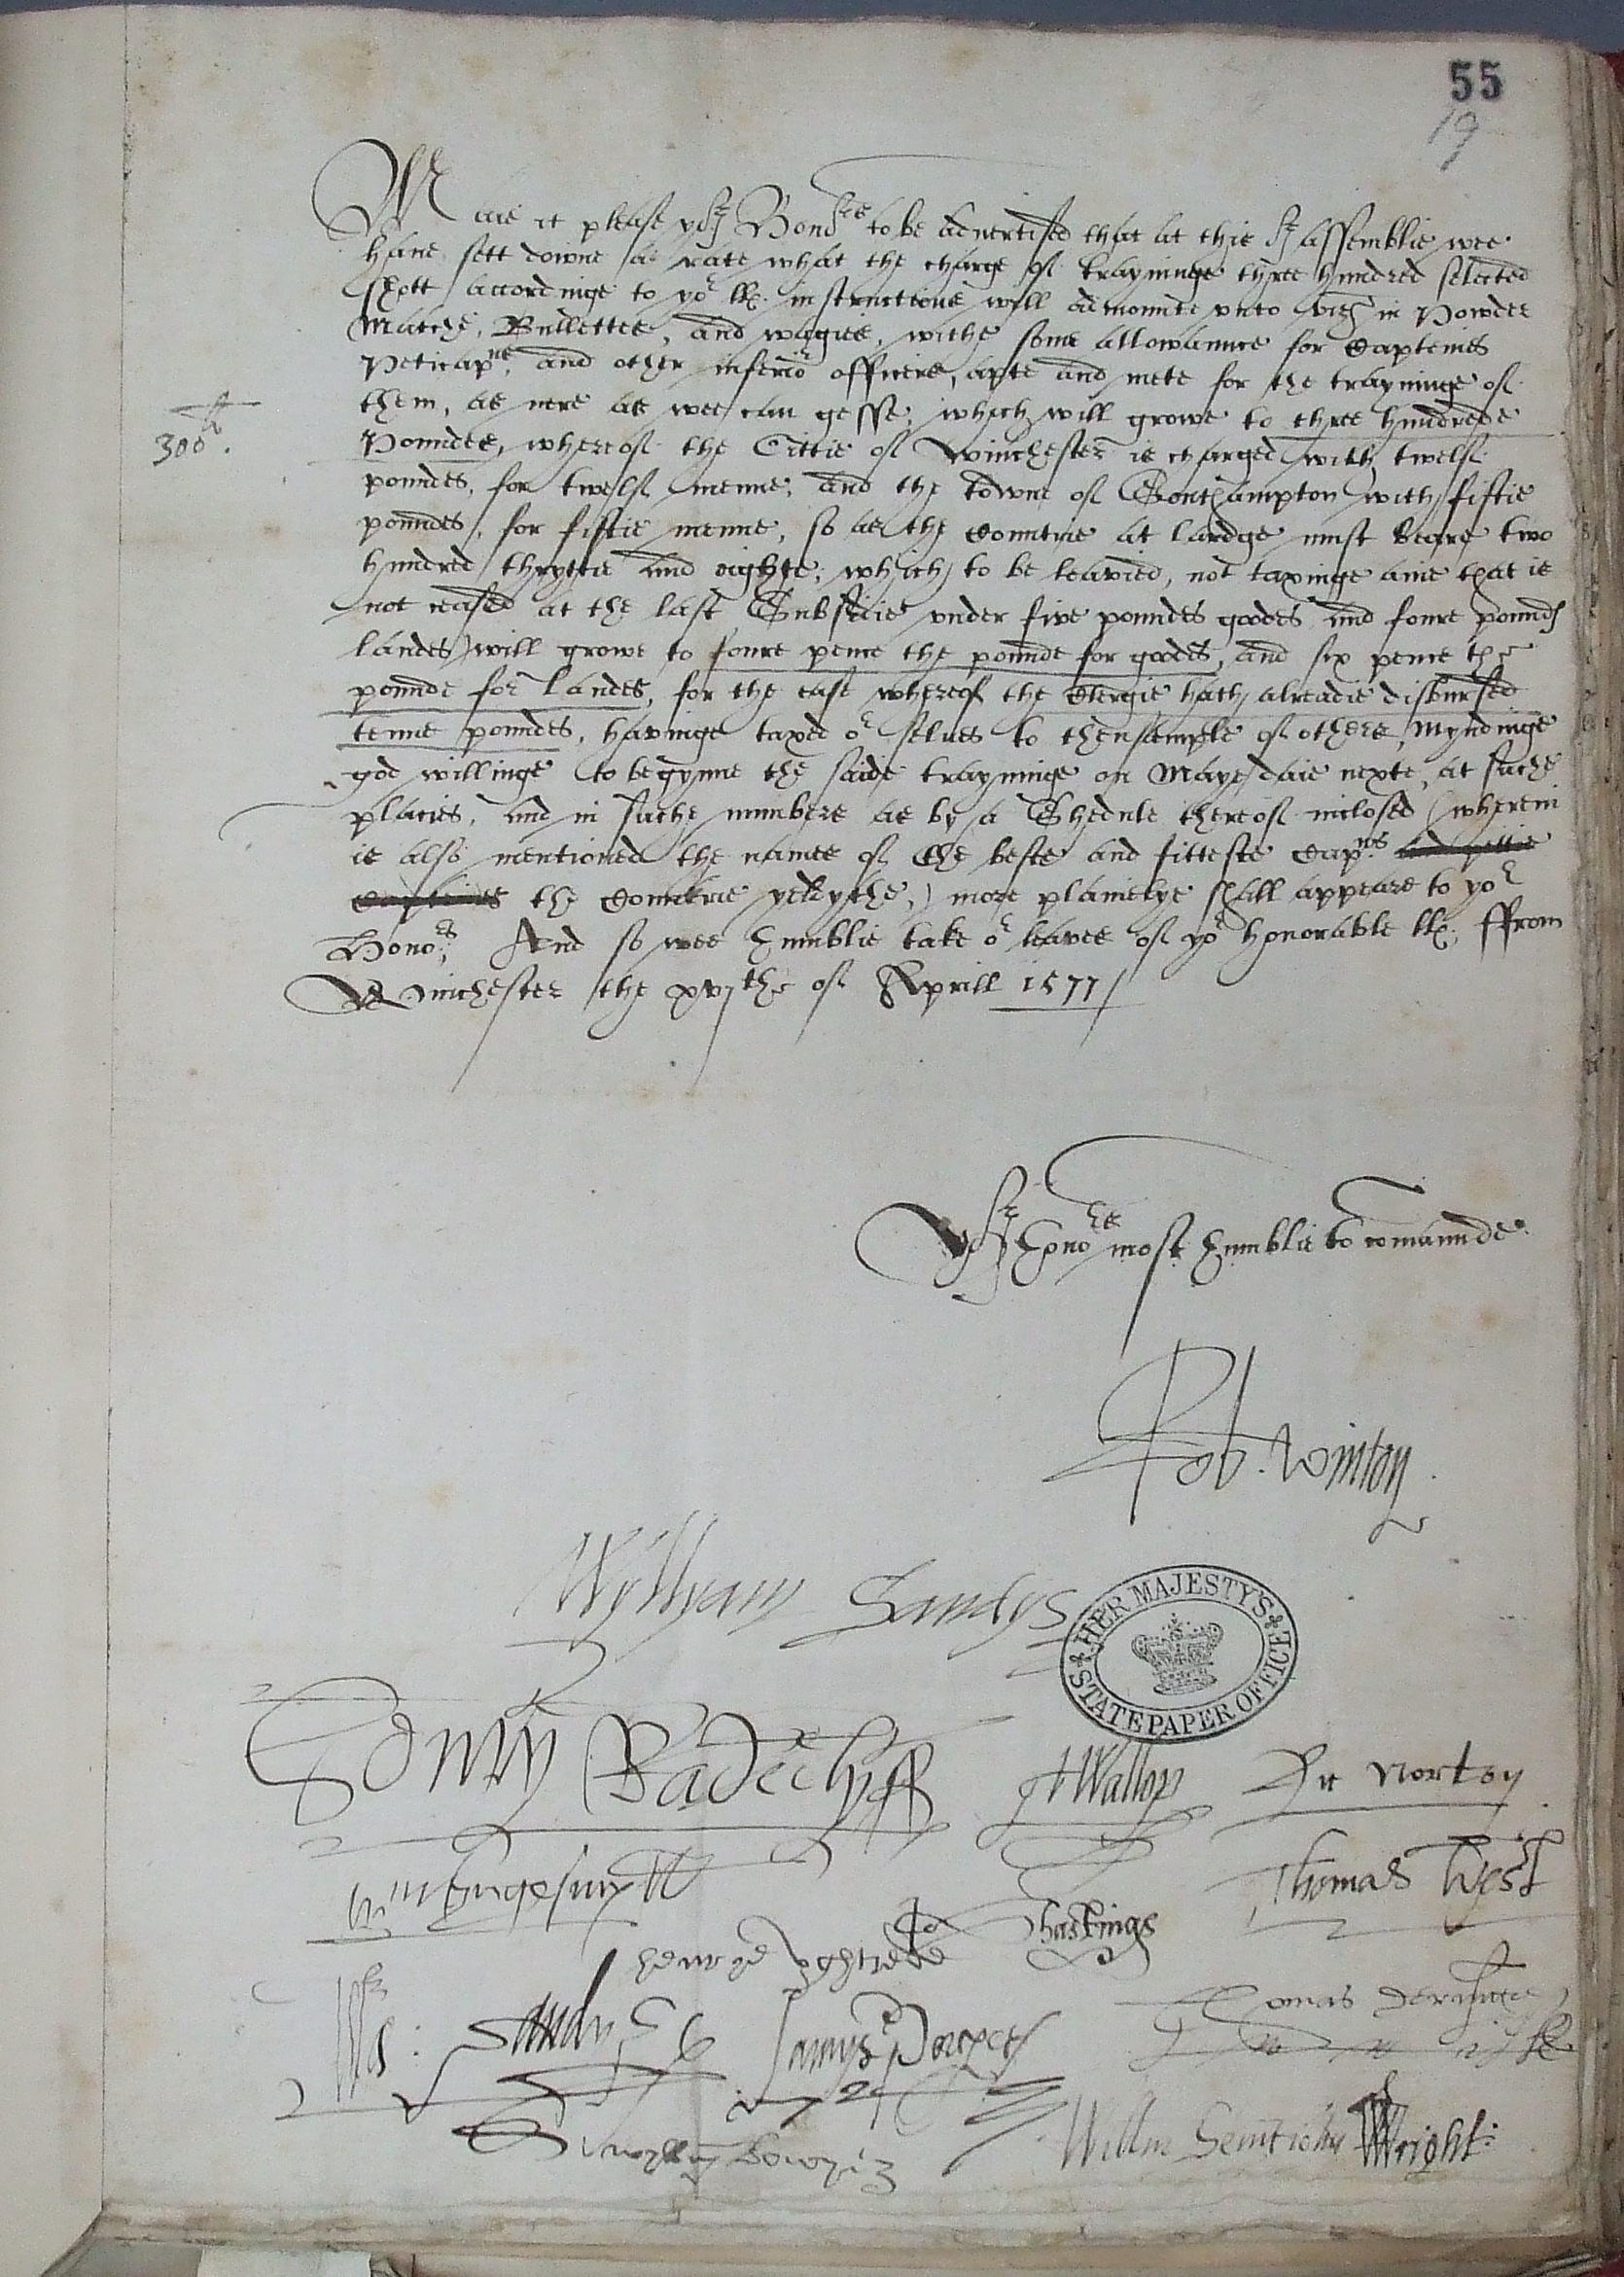 55
19
Maie it please yor Honors to be advertised that at this or assemblie wee
have sett downe a rate what the charge of trayninge three hundred selected
shott accordinge to yor ll. instructions will admounte unto viz in Powder
Matche, Bullettes, and wagies, withe some allowaunce for Capteines
Peticapns, and other inferior officers, apte and mete for the trayninge of
them, as nere as wee can gesse; which will growe to three hundrede
300li.
Poundes, whereof the Cittie of Winchester is charged with twelf
poundes, for twelf menne, and the towne of Southampton with fiftie
poundes, for fiftie menne, so as the Countrie at lardge must beare two
hundred thryttie and eighte; which to be leavied, not taxinge anie that is
not ceased at the last Subsidie under five poundes goodes and foure pounds
landes will growe to foure pence the pounde for goodes, and six pence the
pounde for landes, for the ease whereof the Clergie hath alreadie disbursed
tenne poundes, havinge taxed or selves to thensample of others, Myndinge
god willinge to begynne the saide trayninge on Maye daie nexte, at suche
placies, and in suche numbers as by a Shedule thereof inclosed (wherein
is also mentioned the names of the beste and fitteste Capns and pettie
Capteines the Countrie yeldythe,) more plainelye shall appeare to yor
Honors. And so wee humblie take or leaves of yor honorable ll. ffrom
Winchester the xvjthe of Aprill 1577
Yor honors most humblie to comaunde
Rob. Winton
Wyllyam Sandys
HER MAJESTY'S STATE PAPER OFFICE
Edwar Radeclyff
H Wallop
Ric Norton
Wm Kingesmyll
Thomas West
Jo Hastings
henry ughtrede
Wa: Sandys
Jamys Paget
Thomas Dering
Willm
Wright